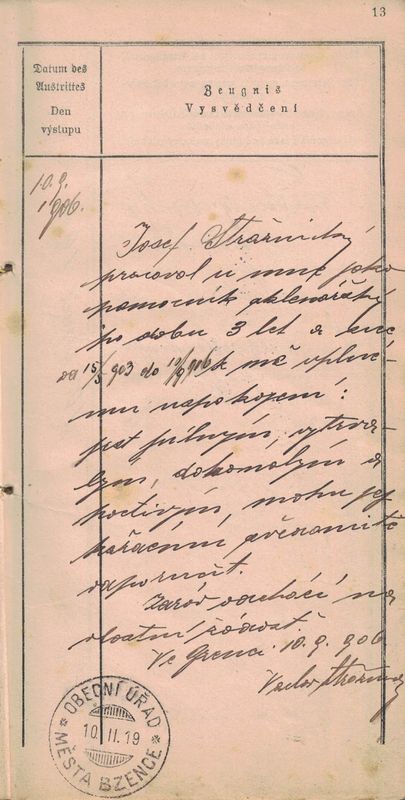 13
Datum des
Austrittes
Den
výstupu
Zeugnis
Vysvědčení
10.9.
1906.
Josef Strážnický
pracoval u mne jako
pomocník sklenářský
po dobu 3 let a
od 15/5 903 do 10/9 906 k mé úplné
mu uspokojení:
jest pilným, vytrva-
lým, dokonalým a
poctivým, mohu jej
svědomitě
odporučit.
odchází na
vlastní žádost.
Ve 10.9.906
Václav
OBECNÍ ÚŘAD
10 II. 19
MĚSTA BZENCE